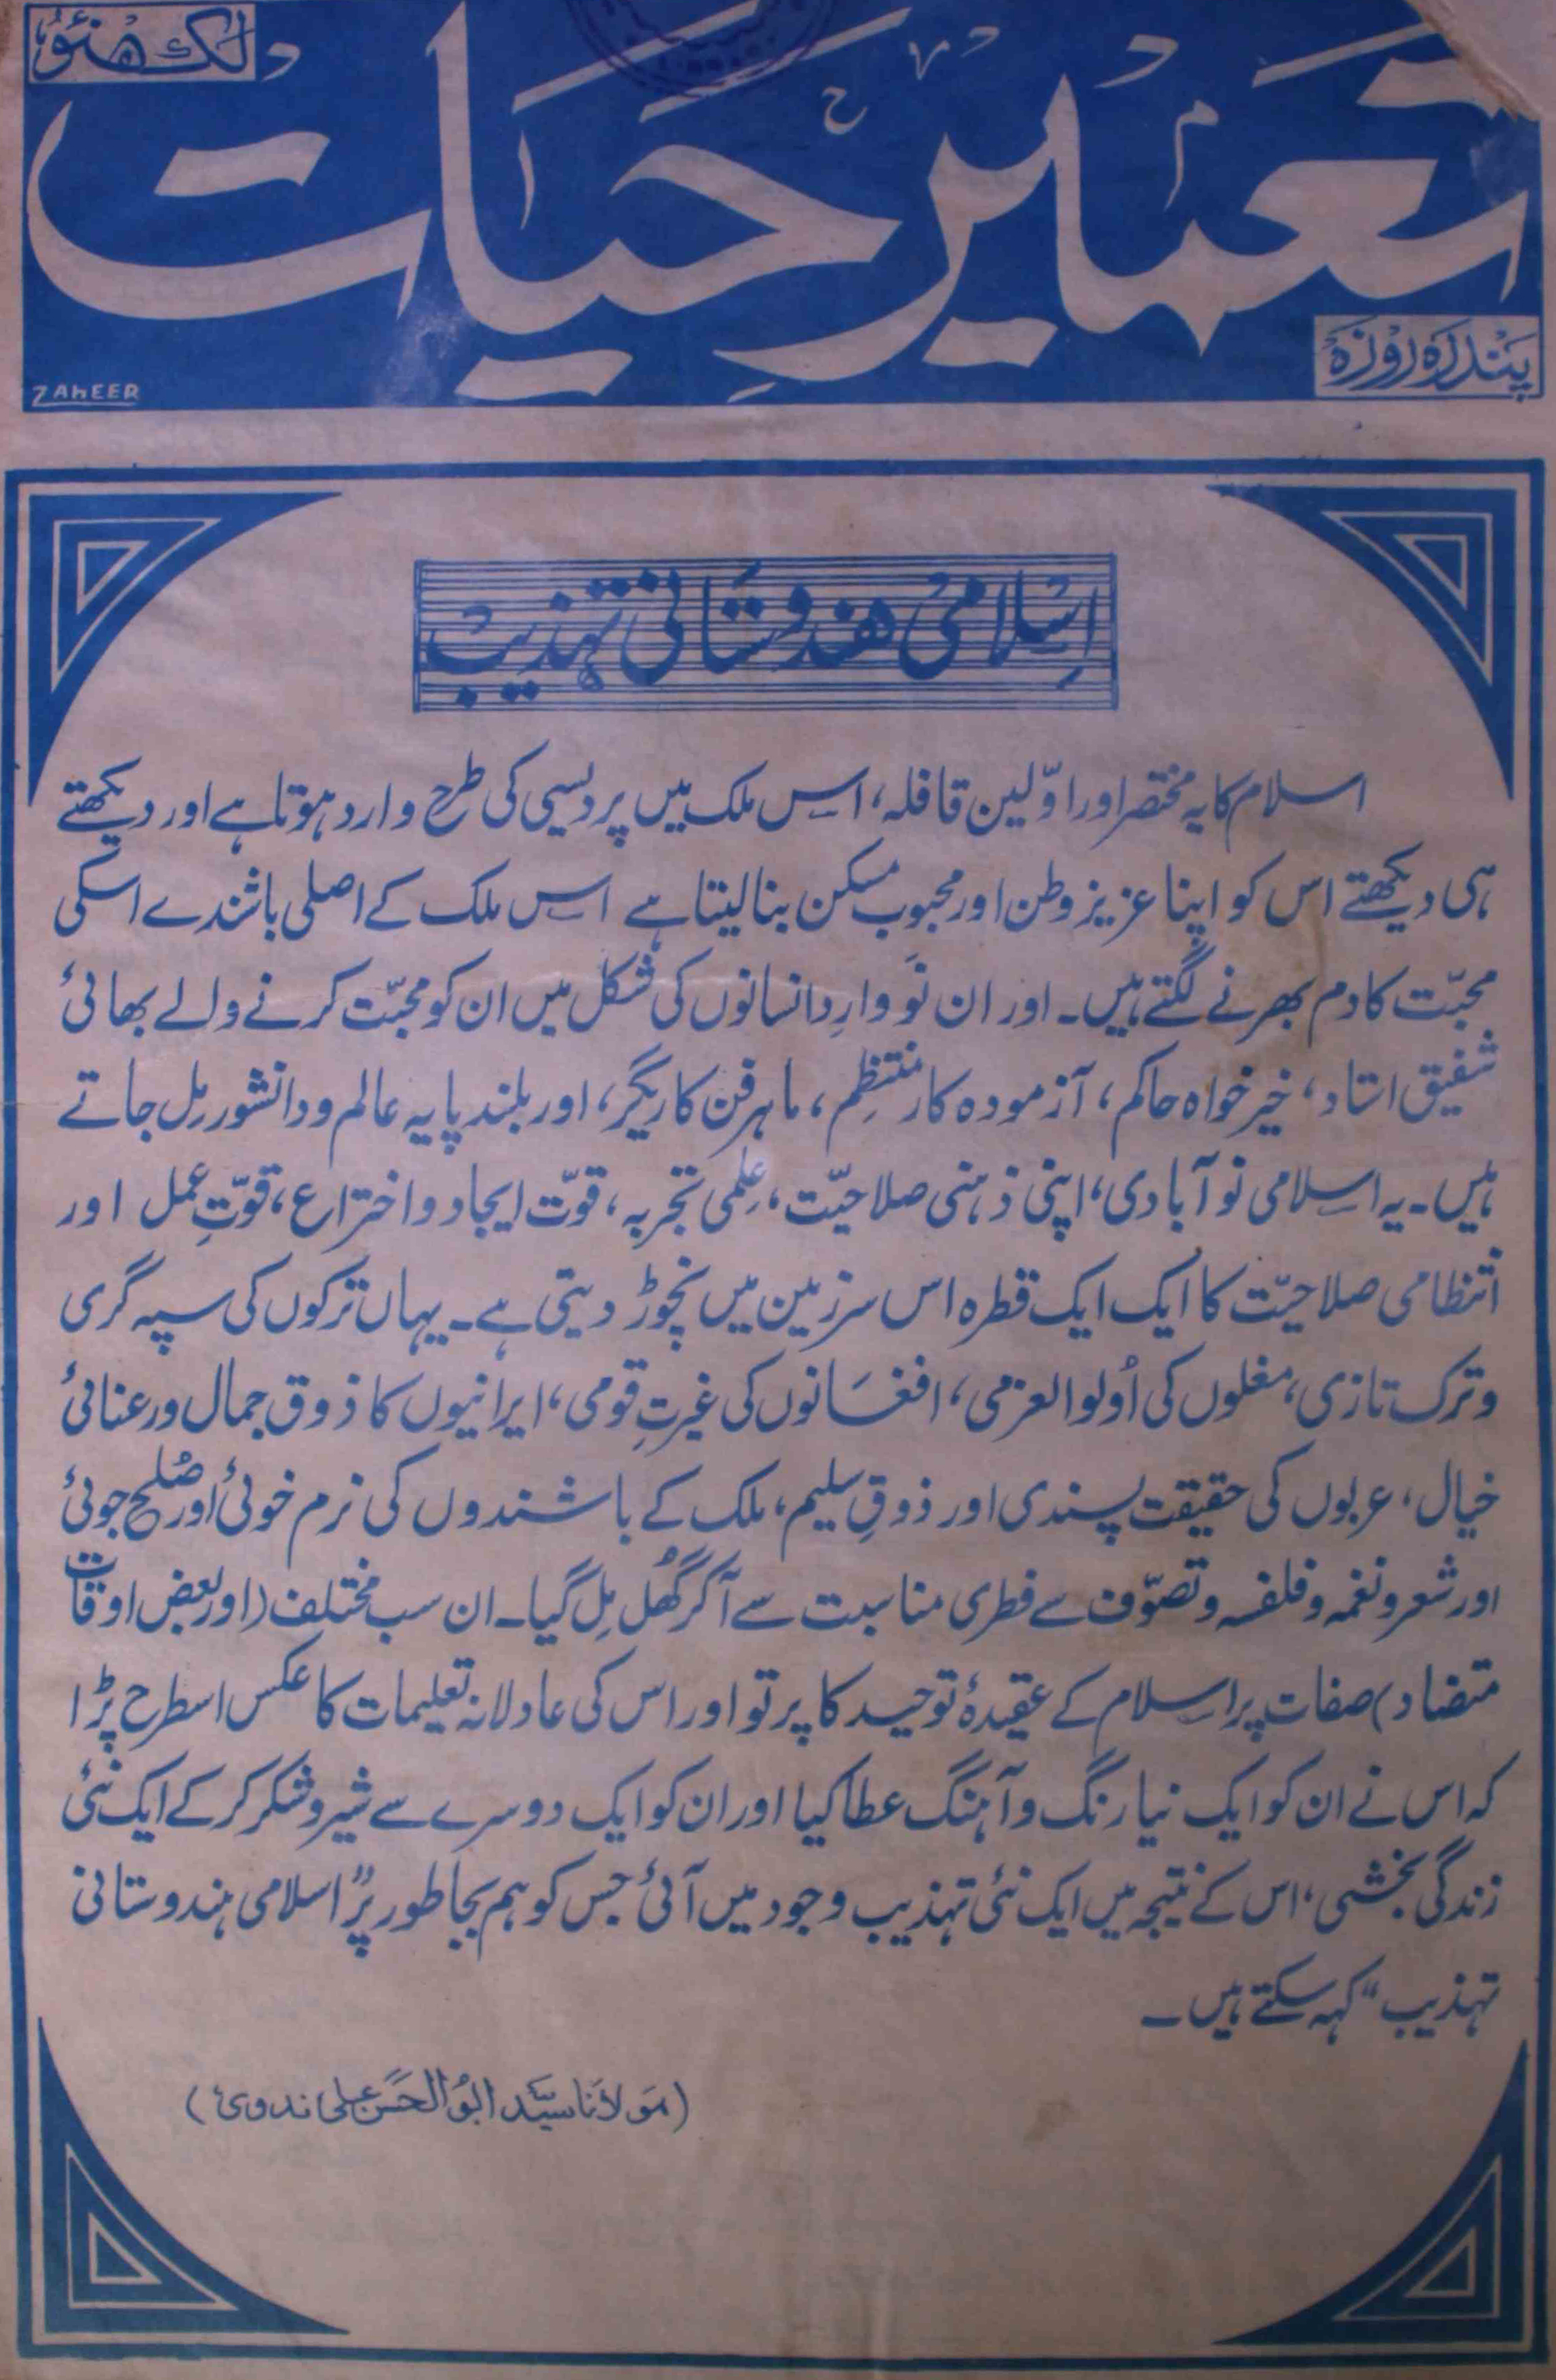 لکھنؤ
تعمیر حیات
پندرہ روزہ
ZAHEER
اسلامی ہندوستانی تہذیب
اسلام کا یہ مختصر اور اوّلین قافلہ، اس ملک میں پردیسی کی طرح وارد ہوتا ہے اور دیکھتے
ہی دیکھتے اس کو اپنا عزیز وطن اور محبوب مسکن بنا لیتا ہے اس ملک کے اصلی باشندے اسکی
محبّت کا دم بھرنے لگتے ہیں۔ اور ان نَو وارِد انسانوں کی شکل میں ان کو محبّت کرنے والے بھائی
شفیق استاد، خیر خواہ حاکم، آزمودہ کار منتظِم، ماہر فن کاریگر، اور بلند پایہ عالم و دانشور مِل جاتے
ہیں۔ یہ اسلامی نوآبادی، اپنی ذہنی صلاحیّت، عِلمی تجربہ، قوّت ایجاد و اختراع، قوّتِ عمل اور
انتظامی صلاحیّت کا ایک ایک قطرہ اس سرزمین میں نچوڑ دیتی ہے۔ یہاں ترکوں کی سپہ گری
و ترک تازی، مغلوں کی اُولوالعزمی، افغَانوں کی غیرتِ قومی، ایرانیوں کا ذوق جمال و رعنائی
خیال، عربوں کی حقیقت پسندی اور ذوقِ سلیم، ملک کے باشندوں کی نرم خوئی اور صُلح جوئی
اور شعر و نغمہ و فلفسہ و تصوّف سے فطری مناسبت سے آکر گھُل مِل گیا۔ ان سب مختلف (اور بعض اوقات
متضاد) صفات پر اسلام کے عقیدۂ توحید کا پرتو اور اس کی عادلانہ تعلیمات کا عکس اسطرح پڑا
کہ اس نے ان کو ایک نیا رنگ و آہنگ عطا کیا اور ان کو ایک دوسرے سے شیر و شکر کر کے ایک نئی
زندگی بخشی، اس کے نتیجہ میں ایک نئی تہذیب وجود میں آئی جس کو ہم بجا طور پر "اسلامی ہندوستانی
تہذیب" کہہ سکتے ہیں۔
(مَولانا سیّد ابُوالحَسَن علی ندوی)